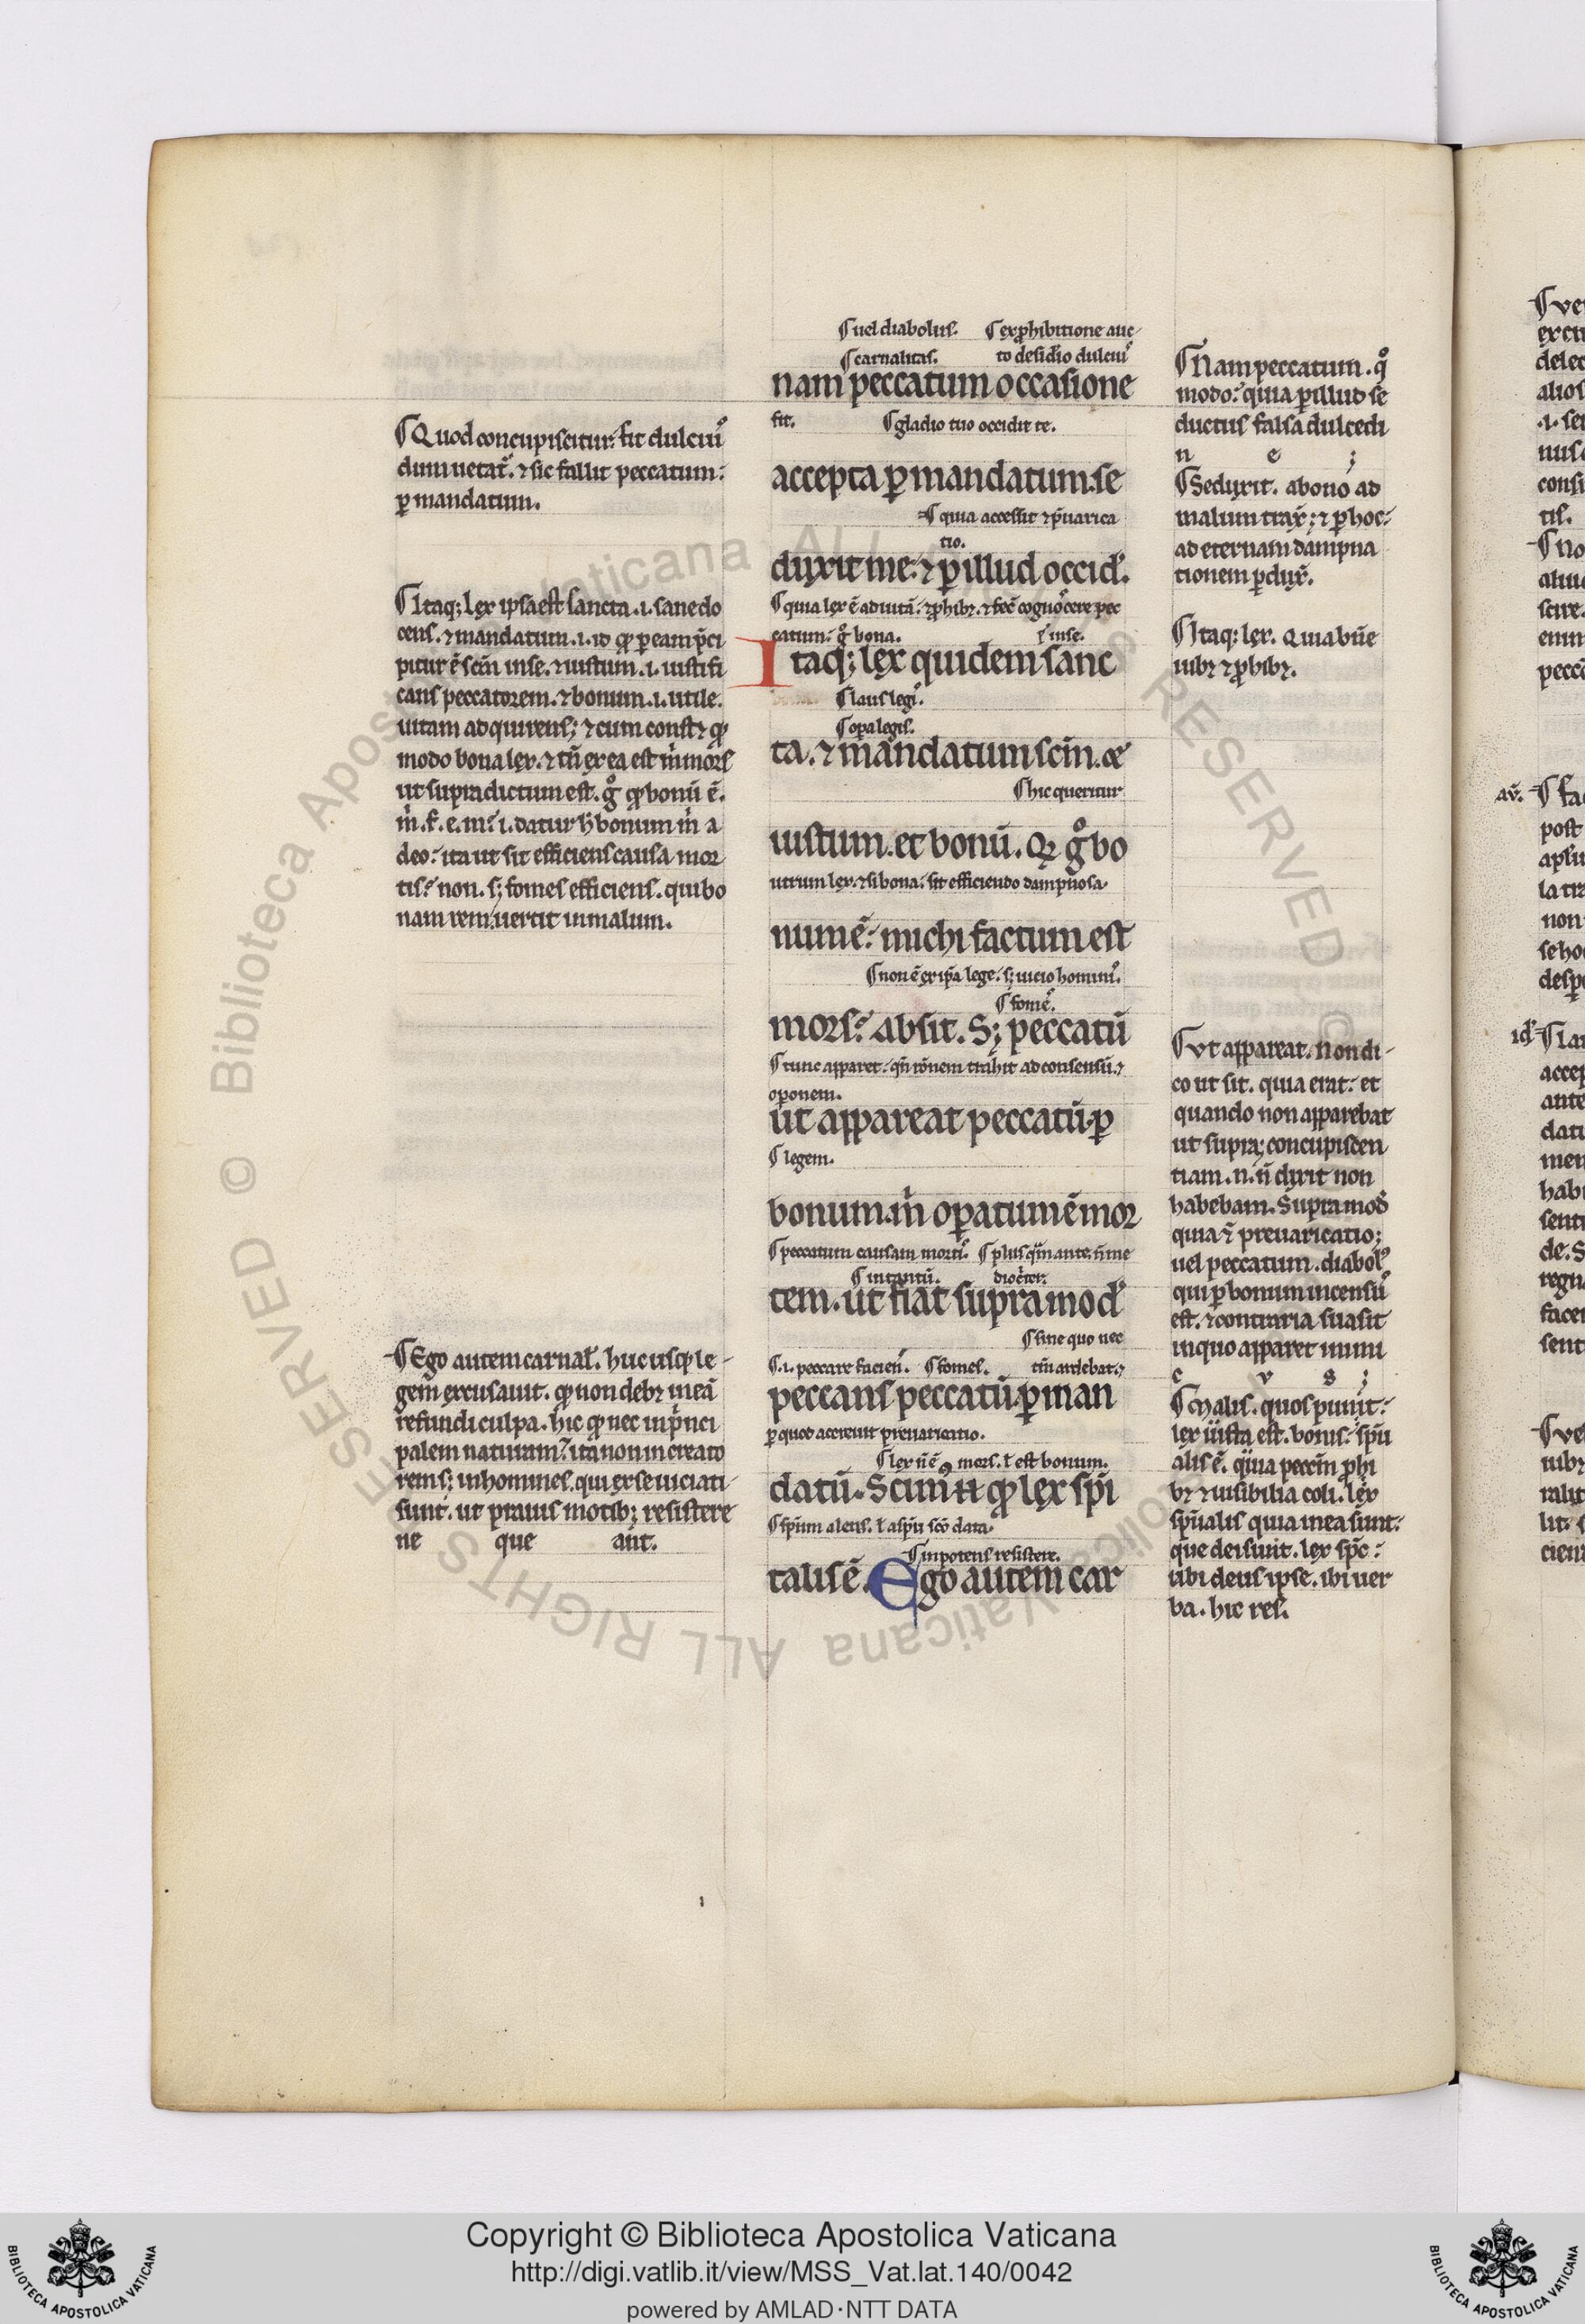 ¶Quod concupiscitur: fit dulciꝰ
dum uetat᷑. ⁊ sic fallit peccatum:
ꝑ mandatum.
¶Itaq; lex ipsa est sancta .i. sane do
cens. ⁊ mandatum .i. id qđ ꝑ eam p̄ci
pitur ē sc̄m in se. ⁊ iustum .i. iustifi
cans peccatorem. ⁊ bonum .i. utile.
uitam adquirens; ⁊ cum constet qđ
modo bona lex. ⁊ tn̄ ex ea est m̄ mors
ut supra dictum est. gͦ qđ bonū ē.
m̄. f. e. m? .i. datur h̄ bonum m̄ a
deo: ita ut sit efficiens causa mor
tis? non. s; fomes efficiens. qui bo
nam rem: uertit in malum.
¶Ego autem carnal᷑. huc usq; le
gem excusauit. qđ non deb; in eā
refundi culpa. hic qđ nec in p̄nci
palem naturam? ita non in creato
rem s; in homines. qui ex se uiciati
sunt. ut prauis motib; resistere
ne que ant.
¶uel diabolus. ¶ex ꝓhibitione auc
¶carnalitas. to desid̄io dulciꝰ
nam peccatum occasione
fit. ¶gladio tuo occidit te.
accepta ꝑ mandatum. se
¶quia accessit ⁊ p̄uarica
tio.
duxit me. ⁊ ꝑ illud occid᷑.
¶quia lex ē ad uitā. ⁊ ꝓhib;. ⁊ fec̄ cognoscere pec
catum: gͦ bona. ¶in se.
Itaq; lex quidem sanc
¶laus legiꝰ.
¶oꝑa legis.
ta. ⁊ mandatum sc̄m. ⁊
¶hic queritur
iustum. et bonū. Q; gͦ bo
utrum lex. ⁊ si bona. sit efficiendo dampnosa.
num ē: michi factum est
¶non ē ex ip̄a lege. s; uicio hominiꝰ.
¶fomeꝰ.
mors? Absit. S; peccatū
¶tunc apparet. qn̄ rōnem trahit ad consensū. ⁊
oꝑonem.
ut appareat peccatū. ꝑ
¶legem.
bonum. m̄ oꝑatum ē mor
¶peccatum causam mortiꝰ. ¶plus qm̄ ante. n̄ me
¶intantū. diocⁱter.
tem. ut fiat supra mod᷑
¶sine quo nec
¶.i. peccare facienꝰ. ¶fomes. tm̄ ardebat. ⁊
peccans peccatū. ꝑ man
ꝑ quod accreuit preuaricatio.
¶lex n̄ ē mors. ł est bonum.
datū. Scim᷒ n̄ qđ lex sp̄i
¶sp̄um alens. ł a sp̄u sc̄o data.
¶inpotens resistere.
talis ē. Ego autem car
¶Nam peccatum. qͦ
modo? quia ꝑ illud se
ductus falsa dulcedi
n e ;
¶Seduxit. a bono ad
malum trax̄; ⁊ ꝑ hoc:
ad eternam dampna
tionem ꝑdux̄.
¶Itaq; lex. Quia bn̄e
iub; ⁊ ꝓhib;.
¶Vt appareat. Non di
co ut sit. quia erat: et
quando non apparebat
ut supra; concupiscen
tiam .n. n̄ dixit non
habebam. Supra mod᷑
quia ⁊ preuaricatio;
uel peccatum. diabolꝰ
qui ꝑ bonum incensuꝰ
est. ⁊ contraria suasit
in quo apparet inimi
c v s ;
¶Malis. quos punit:
lex iusta est. bonis: sp̄u
alis ē. quia peccm̄ ꝓhi
b; ⁊ uisibilia coli. lex
sp̄ualis quia in ea sunt:
que dei sunt. lex sp̄c:
ubi deus ipse. ibi uer
ba. hic res.
Copyright © Biblioteca Apostolica Vaticana
http://digi.vatlib.it/view/MSS_Vat.lat.140/0042
powered by AMLAD·NTT DATA